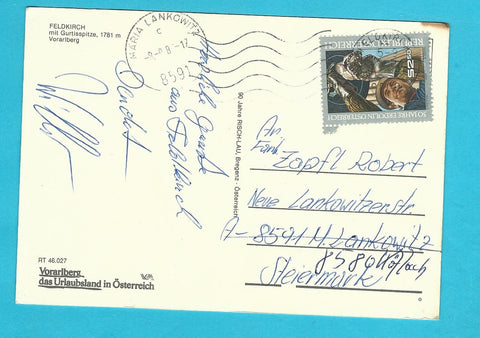 FELDKIRCH
mit Gurtisspitze, 1781 m
Vorarlberg
MARIA LANKOWITZ
c
8592
REPUBLIK ÖSTERREICH
S 2.50
50 JAHRE ERDÖL IN ÖSTERREICH
Herzliche Grüsse
aus Feldkirch
90 Jahre RISCH-LAU, Bregenz - Österreich
An
Zapfl Robert
Neue Lankowitzerstr.
A-8591 M. Lankowitz
8580 Köflach
Steiermark
RT 46.027
Vorarlberg
das Urlaubsland in Österreich